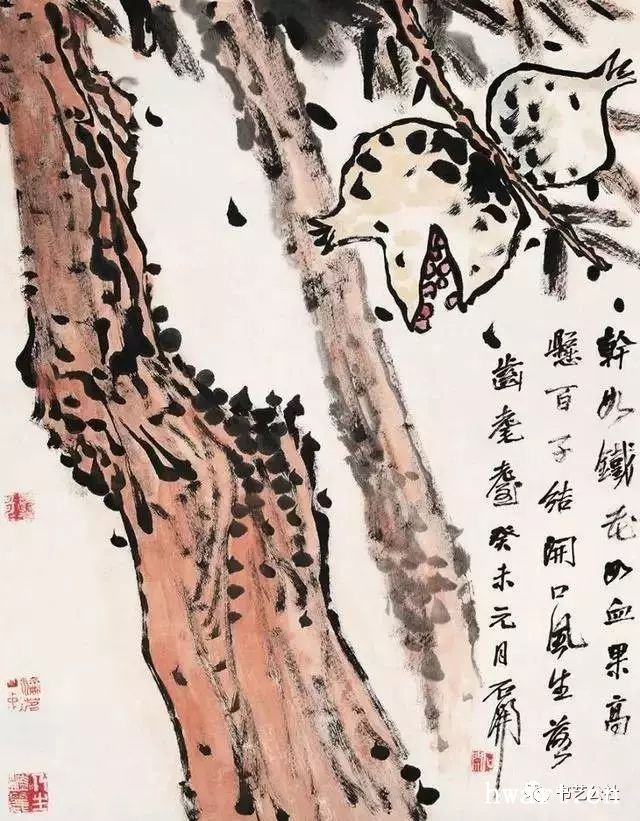 幹如鐵花如血果高
懸百子結開口風生夢
齒耄耋癸未元月石開
书艺公社